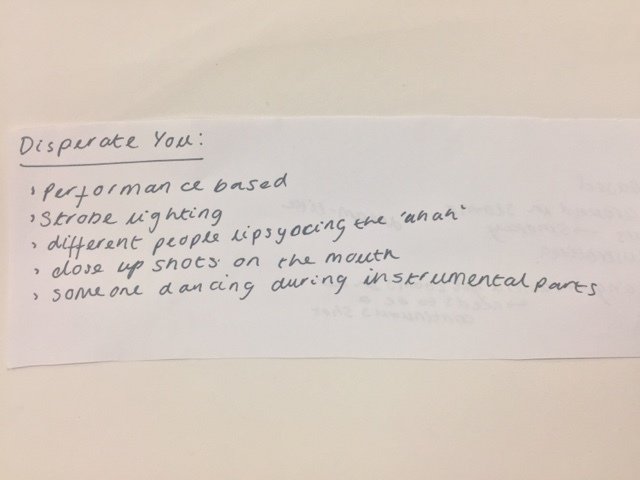 Disperate You:
> Performance based
> Strobe lighting
> different people lipsyocing the 'ahah'
> close up shots on the mouth
> someone dancing during instrumental parts
continuous shot